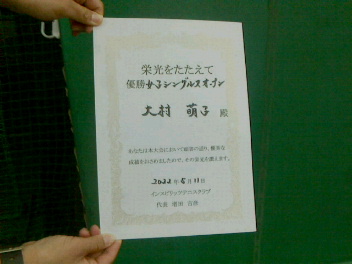 栄光をたたえて
優勝 女子シングルスオープン
大村 萌子 殿
あなたは本大会において頭書の通り、優秀な
成績をおさめましたので、その栄光を讃えます。
2022年6月11日
インスピリッツテニスクラブ
代表